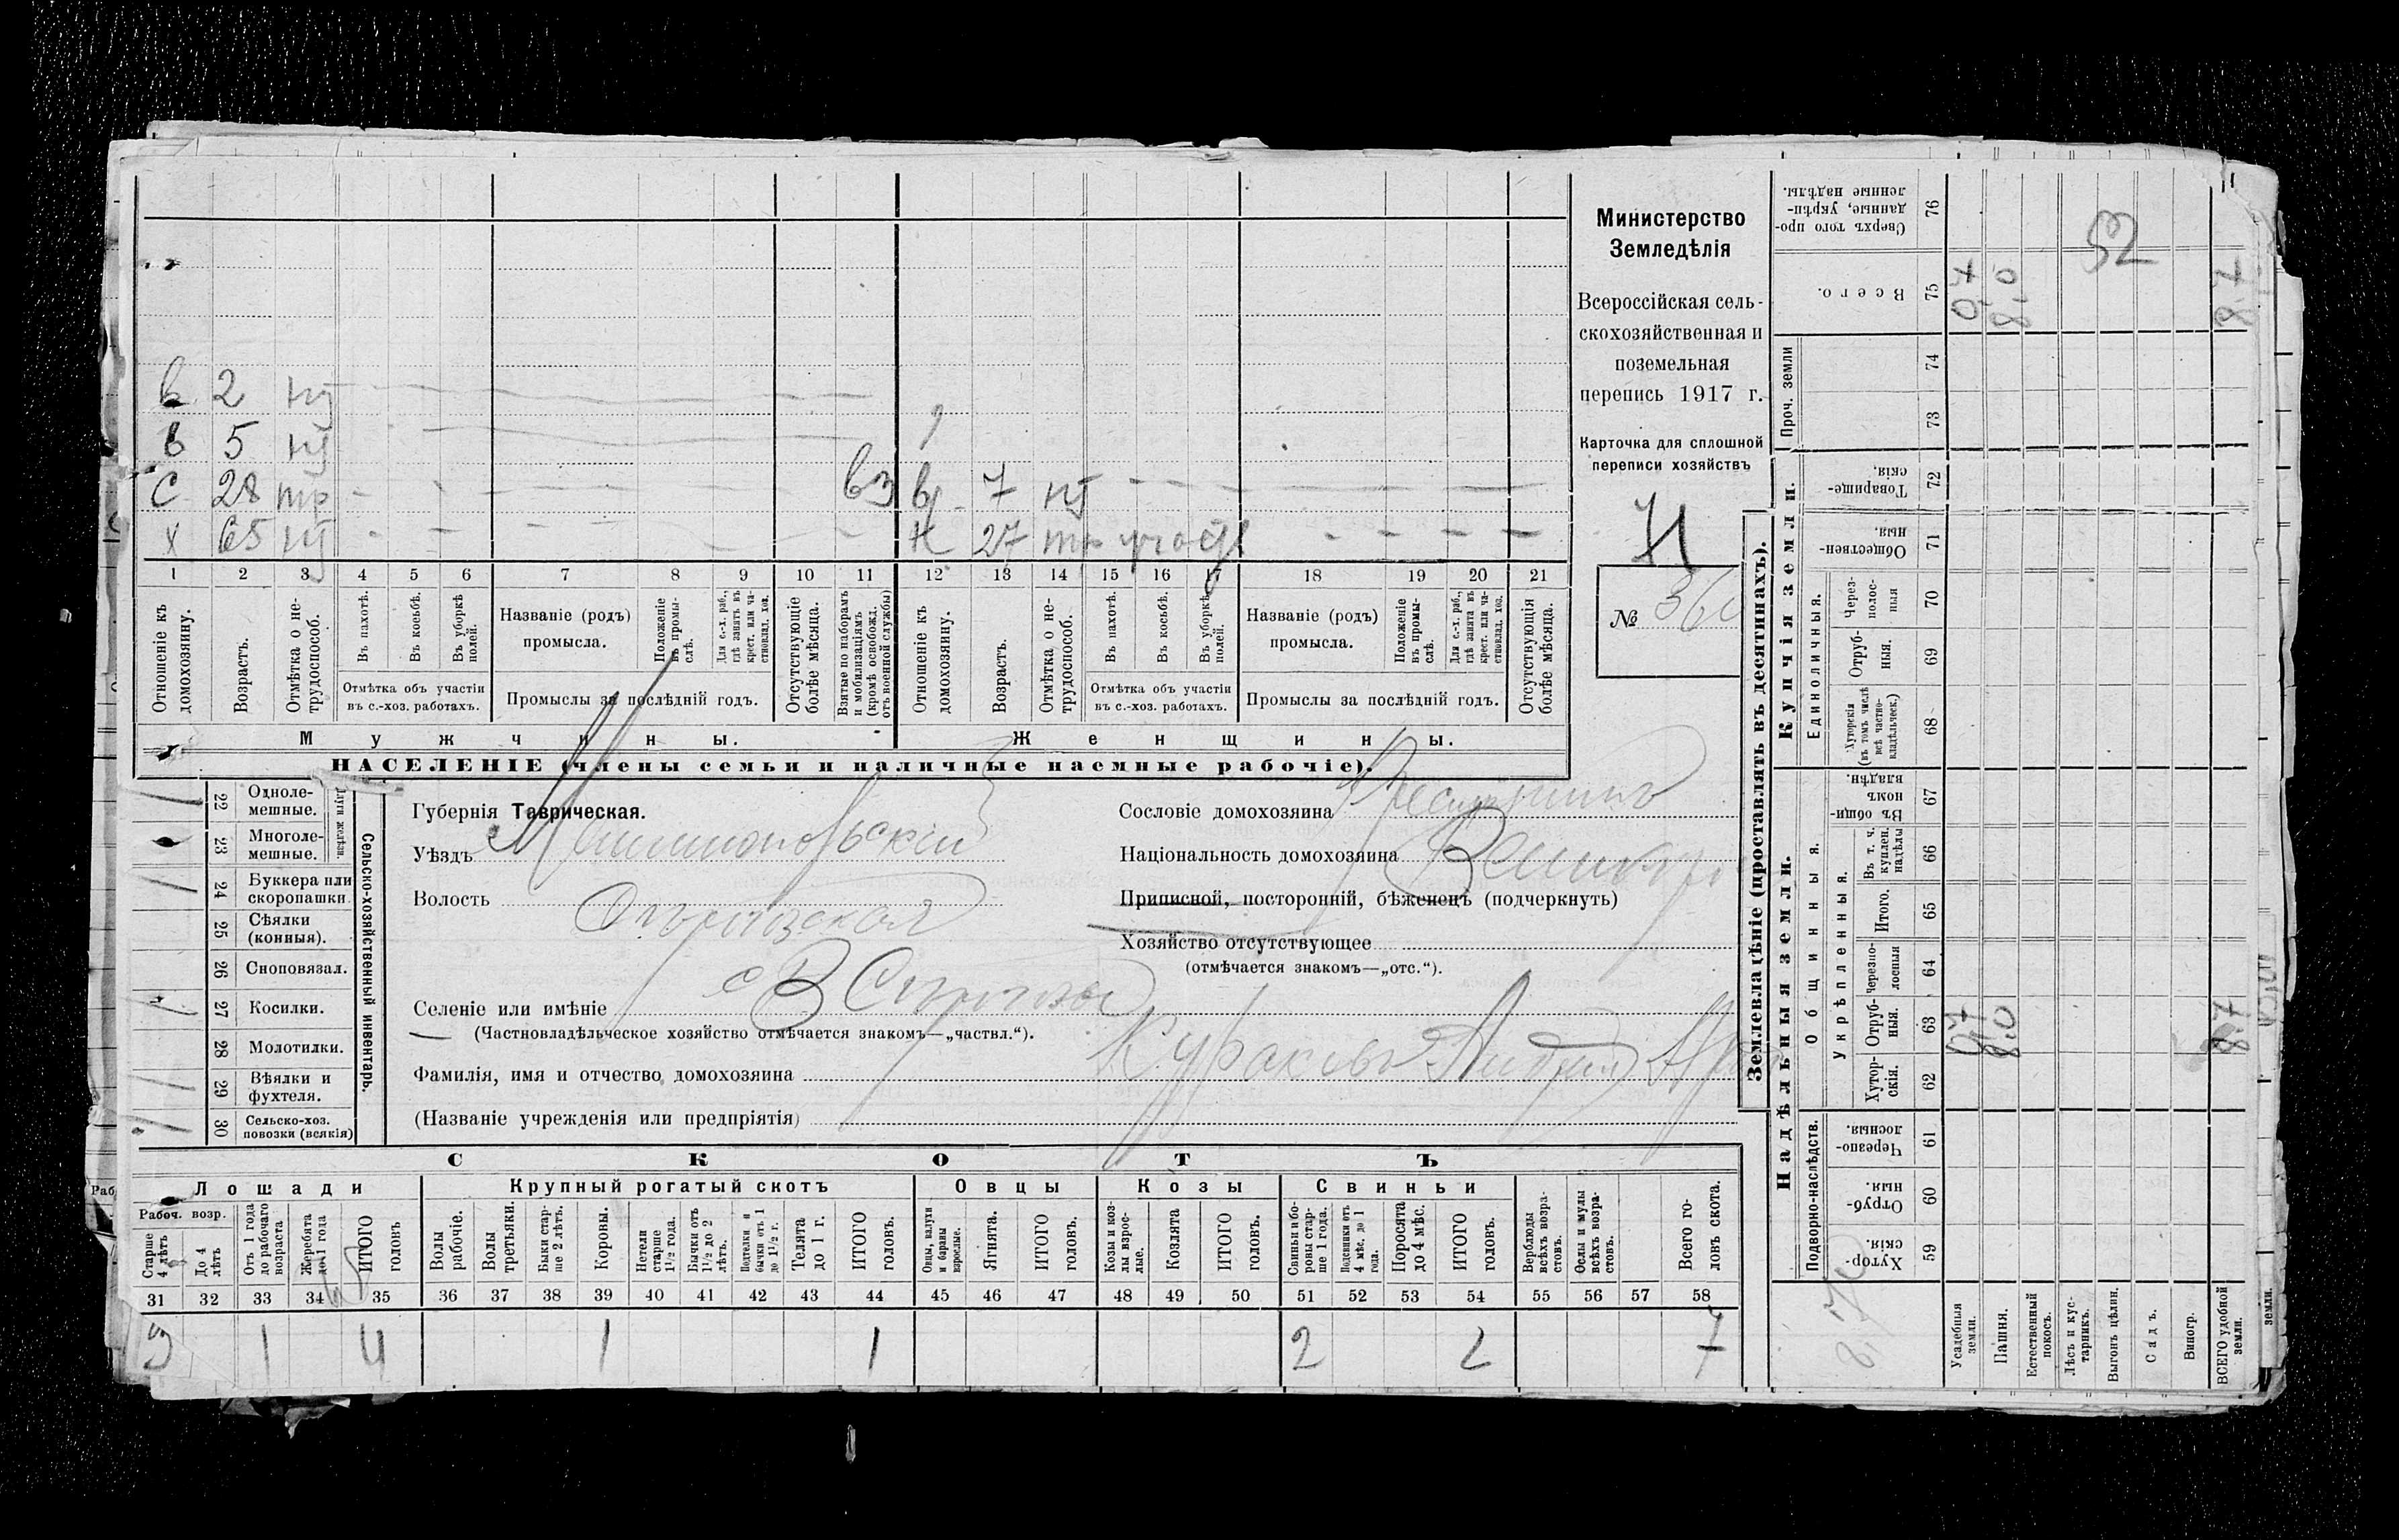 в 2 нт
в 5 нт
с 28 тр вз в 7 нт
х 65 нт 27
1 2 3 4 5 6 7 8 9 10 11 12 13 14 15 16 17 18 19 20 21
Отношеніе къ домохозяину.
Возрастъ.
Отмѣтка о не-трудоспособ.
Въ пахотѣ.
Въ косьбѣ.
Въ уборкѣ полей.
Отмѣтка объ участіи въ с.-хоз. работахъ.
Названіе (родъ) промысла.
Положеніе въ промы-слѣ.
Для с.-х. раб., гдѣ занятъ въ крест. или ча-стновлад. хоз.
Промыслы за послѣдній годъ.
Отсутствующіе болѣе мѣсяца.
Взятые по наборамъ и мобилизаціямъ (кромѣ освобожд. отъ военной службы)
Отношеніе къ домохозяину.
Возрастъ.
Отмѣтка о не-трудоспособ.
Въ пахотѣ.
Въ косьбѣ.
Въ уборкѣ полей.
Отмѣтка объ участіи въ с.-хоз. работахъ.
Названіе (родъ) промысла.
Положеніе въ промы-слѣ.
Для с.-х. раб., гдѣ занята въ крест. или ча-стновлад. хоз.
Промыслы за послѣдній годъ.
Отсутствующія болѣе мѣсяца.
Мужчины. Женщины.
НАСЕЛЕНІЕ (члены семьи и наличные наемные рабочіе).
Министерство
Земледѣлія
Всероссійская сель-
скохозяйственная и
поземельная
перепись 1917 г.
Карточка для сплошной
переписи хозяйствъ
№
22 Одноле-мешные.
23 Многоле-мешные.
24 Буккера или скоропашки
25 Сѣялки (конныя).
26 Сноповязал.
27 Косилки.
28 Молотилки.
29 Вѣялки и фухтеля.
30 Сельско-хоз. повозки (всякія)
Сельско-хозяйственный инвентарь.
Губернія Таврическая.
Уѣздъ
Волость
Селеніе или имѣніе
(Частновладѣльческое хозяйство отмѣчается знакомъ—„частвл.“).
Фамилія, имя и отчество домохозяина Кураковъ Андрей
(Названіе учрежденія или предпріятія)
Сословіе домохозяина
Національность домохозяина
Приписной, посторонній, бѣженецъ (подчеркнуть)
Хозяйство отсутствующее
(отмѣчается знакомъ—„отс.“).
СКОТЪ
Лошади Крупный рогатый скотъ Овцы Козы Свиньи
Рабоч. возр.
Старше 4 лѣтъ
До 4 лѣтъ
Отъ 1 года до рабочаго возраста
Жеребята до 1 года
ИТОГО головъ
Волы рабочіе.
Волы третьяки.
Быки стар-ше 2 лѣтъ.
Коровы.
Нетели старше 1½ года.
Бычки отъ 1½ до 2 лѣтъ.
Подтелки и бычки отъ 1 до 1½ г.
Телята до 1 г.
ИТОГО головъ.
Овцы, валухи и бараны взрослые.
Ягнята.
ИТОГО головъ.
Козы и коз-лы взрос-лые.
Козлята
ИТОГО головъ.
Свиньи и бо-ровы стар-ше 1 года.
Подсвинки отъ 4 мѣс. до 1 года.
Поросята до 4 мѣс.
ИТОГО головъ.
Верблюды всѣхъ возра-стовъ.
Ослы и мулы всѣхъ возра-стовъ.
Всего го-ловъ скота.
31 32 33 34 35 36 37 38 39 40 41 42 43 44 45 46 47 48 49 50 51 52 53 54 55 56 57 58
3 1 4 1 1 2 2 7
Землевладѣніе (проставлять въ десятинахъ).
Надѣльныя земли. Купчія земли. Проч. земли
Подворно-наслѣдств.
Общинныя.
Укрѣпленныя.
Единоличныя.
59 Хутор-скія.
60 Отруб-ныя.
61 Черезпо-лосныя.
62 Хутор-скія.
63 Отруб-ныя.
64 Черезпо-лосныя
65 Итого.
66 Въ т. ч. куплен. надѣлы
67 Въ общи-номъ владѣн.
68 Хуторскія (въ томъ числѣ всѣ частно-владѣльческ.)
69 Отруб-ныя.
70 Через-полос-ныя
71 Обществен-ныя.
72 Товарище-скія.
73
74
75 Всего.
76 Сверхъ того про-данные, укрѣп-ленные надѣлы.
Усадебныя земли. 0,7 0,7
Пашня. 8,0 8,0
Естественный покосъ.
Лѣсъ и кус-тарникъ.
Выгонъ цѣлин.
Садъ.
Виногр.
ВСЕГО удобной земли. 8,7 8,7
52
8,7